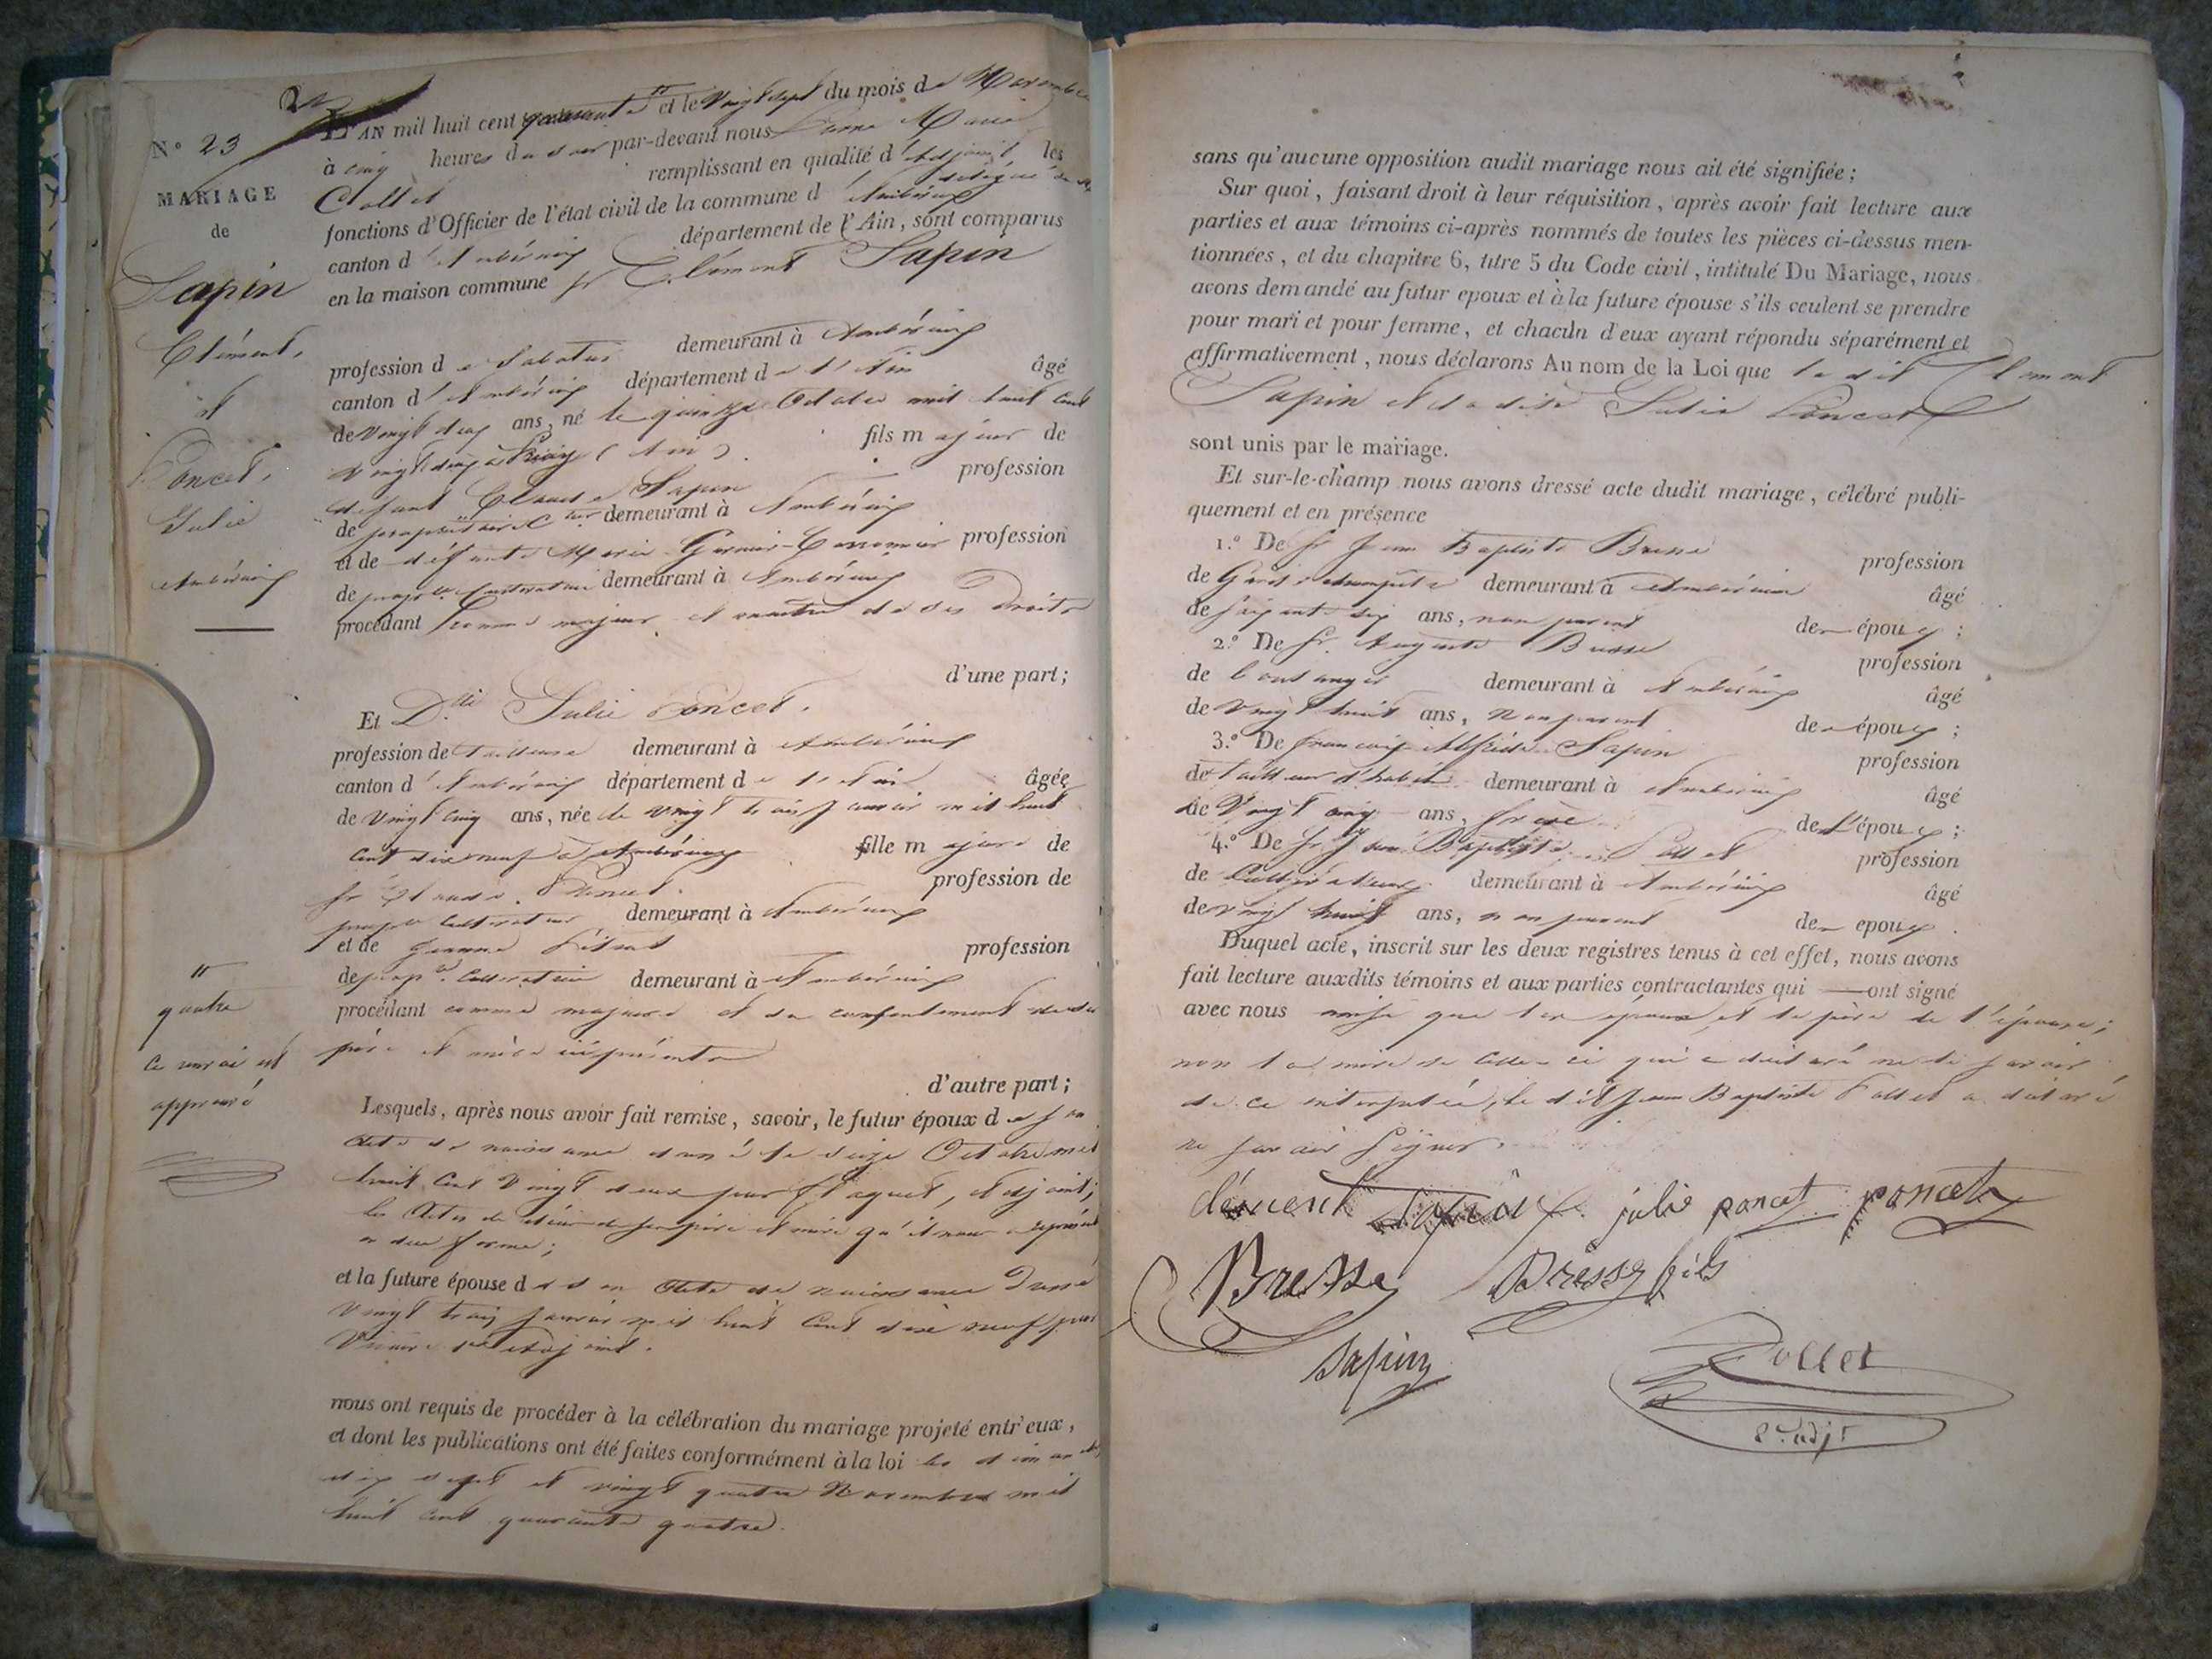 N° 23
MARIAGE
de
Sapin
Clément,
et
Poncet,
Julie
Ambérieux
quatre
ce renvoi est
approuvé
L'AN mil huit cent quarante et le vingt sept du mois de Novembre
à cinq heures du soir par-devant nous Marie
Collet remplissant en qualité d'adjoint les
fonctions d'Officier de l'état civil de la commune d'Ambérieux
canton d'Ambérieux département de l'Ain, sont comparus
en la maison commune Sr Clément Sapin
profession de Sabotier demeurant à Ambérieux
canton d'Ambérieux département de l'Ain âgé
de vingt deux ans, né le quinze Octobre mil huit cent
vingt deux à (Ain) fils majeur de
défunt Claude Sapin profession
de propriétaire demeurant à Ambérieux
et de défunte Marie profession
de demeurant à Ambérieux
procédant comme majeur et maître de ses droits
d'une part;
Et Dlle Julie Poncet.
profession de tailleuse demeurant à Ambérieux
canton d'Ambérieux département de l'Ain âgée
de vingt cinq ans, née le vingt trois Janvier mil huit
cent dix neuf à Ambérieux fille majeure de
Sr Claude Poncet. profession de
cultivateur demeurant à Ambérieux
et de Jeanne profession
de demeurant à Ambérieux
procédant comme majeure et du consentement de ses
père et mère ici présents
d'autre part;
Lesquels, après nous avoir fait remise, savoir, le futur époux de son
acte de naissance donné le seize Octobre mil
huit cent vingt deux par adjoint;
les actes de décès de ses père et mère qu'il nous a représenté
en due forme;
et la future épouse de son acte de naissance dressé
vingt trois Janvier mil huit cent dix neuf par
adjoint.
nous ont requis de procéder à la célébration du mariage projeté entr'eux,
et dont les publications ont été faites conformément à la loi les dimanches
dix sept et vingt quatre Novembre mil
huit cent quarante quatre.
sans qu'aucune opposition audit mariage nous ait été signifiée;
Sur quoi, faisant droit à leur réquisition, après avoir fait lecture aux
parties et aux témoins ci-après nommés de toutes les pièces ci-dessus men-
tionnées, et du chapitre 6, titre 5 du Code civil, intitulé Du Mariage, nous
avons demandé au futur epoux et à la future épouse s'ils veulent se prendre
pour mari et pour femme, et chacun d'eux ayant répondu séparément et
affirmativement, nous déclarons Au nom de la Loi que le dit Clément
Sapin et la dite Julie Poncet
sont unis par le mariage.
Et sur-le-champ nous avons dressé acte dudit mariage, célébré publi-
quement et en présence
1.° De Sr Jean Baptiste Bresse profession
de Garde champêtre demeurant à Ambérieux âgé
de soixante six ans, non parent des époux;
2.° De Sr. Auguste Bresse profession
de boulanger demeurant à Ambérieux âgé
de vingt huit ans, non parent des époux;
3.° De François Sapin profession
de tailleur d'habits demeurant à Ambérieux âgé
de vingt cinq ans, frère de l'époux;
4.° De Sr Jean Baptiste Collet profession
de Cultivateur demeurant à Ambérieux âgé
de vingt huit ans, non parent des epoux.
Duquel acte, inscrit sur les deux registres tenus à cet effet, nous avons
fait lecture auxdits témoins et aux parties contractantes qui ont signé
avec nous ainsi que les époux et le père de l'épouse;
non la mère de celle-ci qui a déclaré ne le savoir
de ce interpelée, le dit Jean Baptiste Collet a déclaré
ne savoir signer.
clément Sapin julie poncet poncet
Bresse Bresse fils
sapin Collet
2e adjt